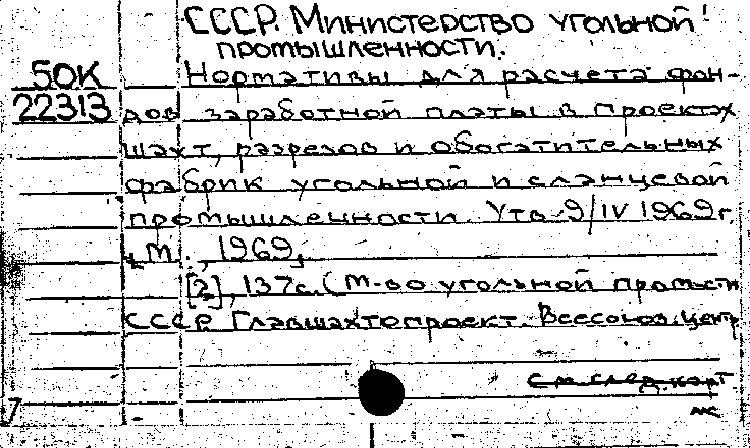 СССР. Министерство угольной
промышленности.
50К
22313
Нормативы для расчета фон-
дов заработной платы в проектах
шахт, разрезов и обогатительных
фабрик угольной и сланцевой
промышленности. Утв. 9/IV 1969г
М., 1969.
[2], 137с. (М-во угольной пром-сти
СССР. Главшахтопроект. Всесоюз. центр
см. след. карт